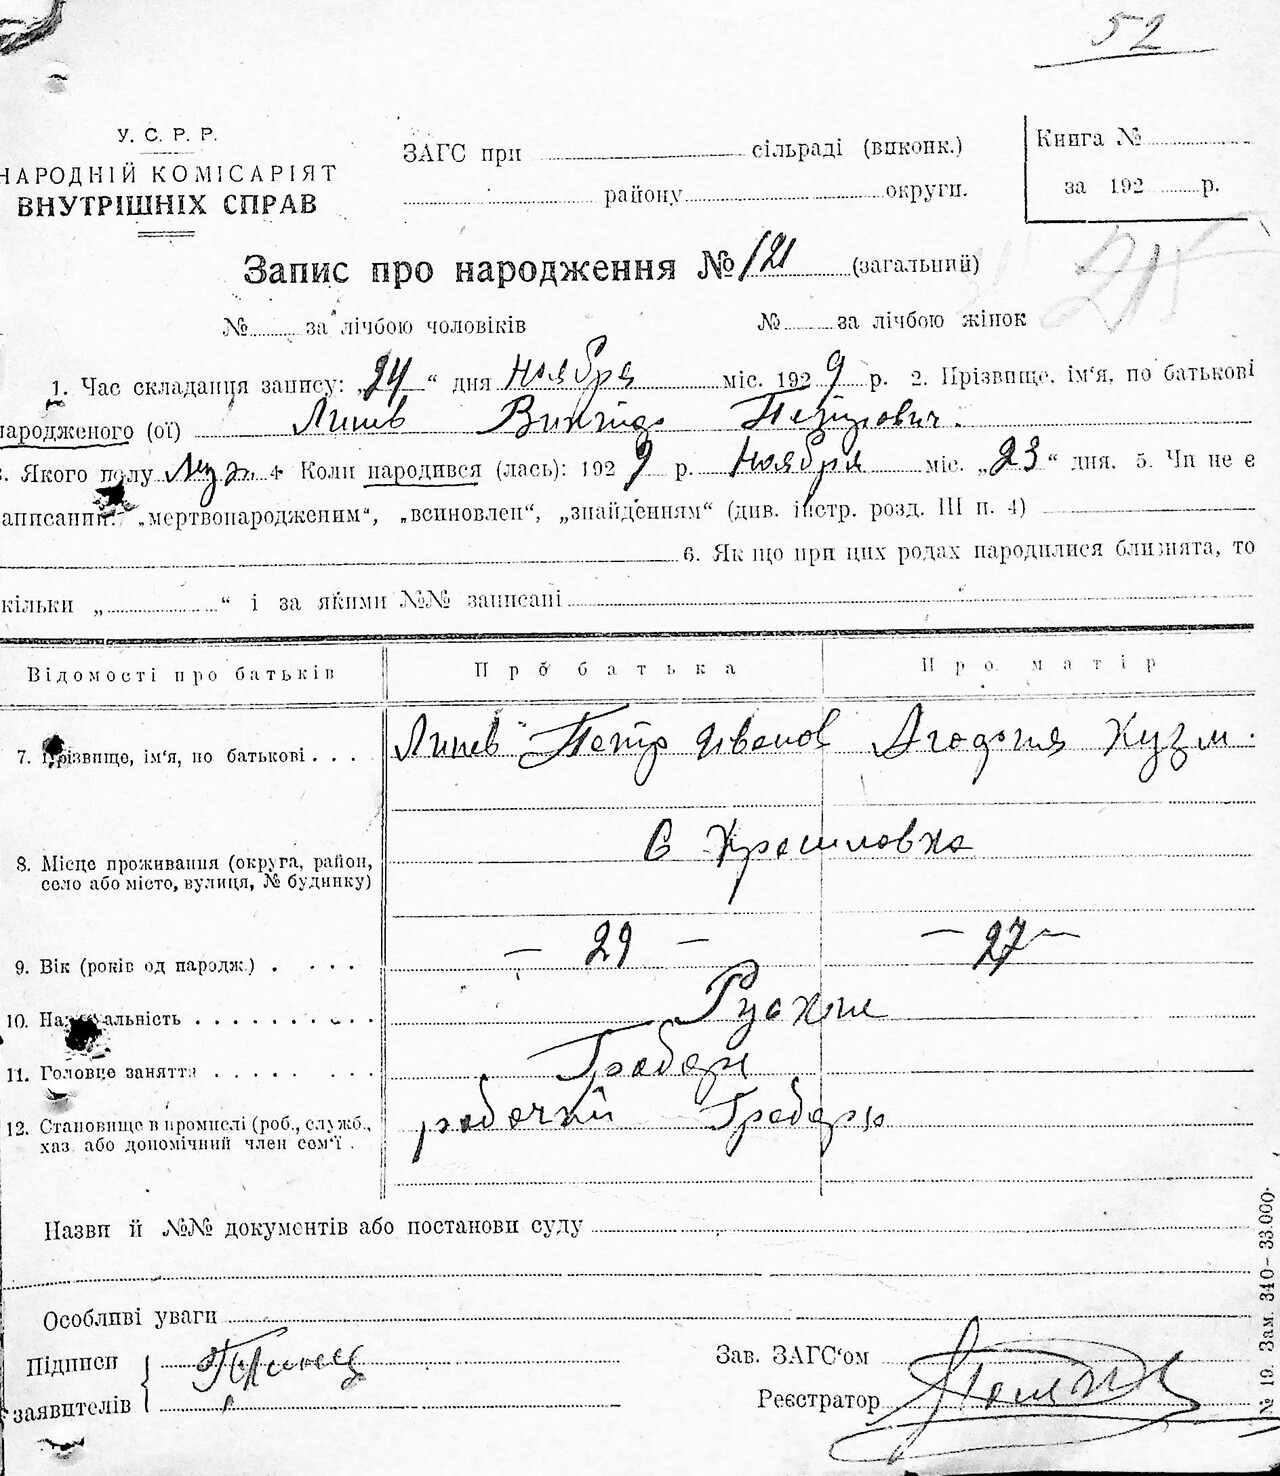 52
У. С. Р. Р.
НАРОДНІЙ КОМІСАРІЯТ
ВНУТРІШНІХ СПРАВ
ЗАГС при сільраді (виконк.)
району округи.
Книга №
за 192 р.
Запис про народження № 121 (загальний)
№ за лічбою чоловіків № за лічбою жінок
1. Час складання запису: „24“ дня ноября міс. 1929 р. 2. Прізвище, ім'я, по батькові
народженого (ої) Петрович.
3. Якого полу муж 4 Коли народився (лась): 1929 р. ноября міс. „23“ дня. 5. Чи не є
записаний: „мертвонародженим“, „всиновлен“, „знайденням“ (див. інстр. розд. III п. 4)
6. Як що при цих родах народилися близнята, то
скільки „ “ і за якими №№ записані
Відомості про батьків Про батька Про матір
7. Прізвище, ім'я, по батькові . . . Петр Иванов Кузм.
8. Місце проживання (округа, район,
село або місто, вулиця, № будинку) С
9. Вік (років од народж.) . . . . . — 29 — — 27 —
10. Національність . . . . . . . . . . Руские
11. Головне заняття . . . . . . . . Грабарь
12. Становище в промислі (роб., служб.,
хаз. або допомічний член сем'ї . рабочий Грабарь
Назви й №№ документів або постанови суду
Особливі уваги
Підписи
заявителів
Зав. ЗАГС'ом
Реєстратор
№ 19. Зам. 340–33.000.